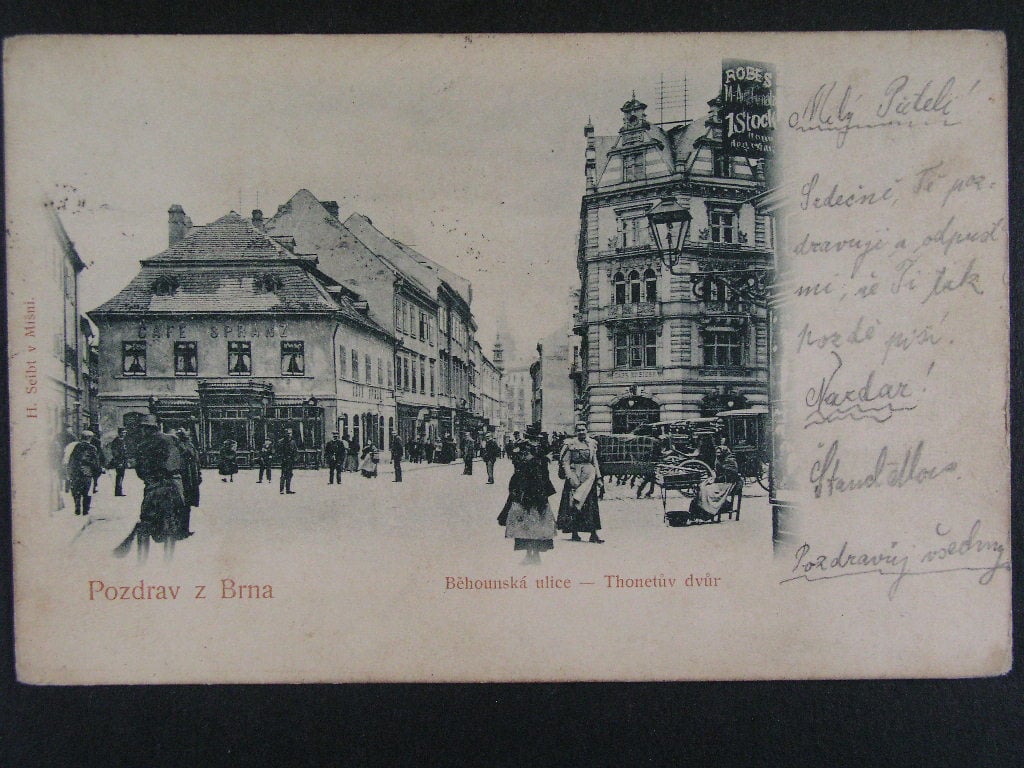 H. Seibt v Míšni.
CAFÉ SPRANZ
ROBES
1 Stock
Milý Příteli!
Srdečně Tě poz-
dravuji a odpusť
mi, že Ti tak
pozdě píši.
Nazdar!
Pozdravuj všechny
Pozdrav z Brna
Běhounská ulice — Thonetův dvůr